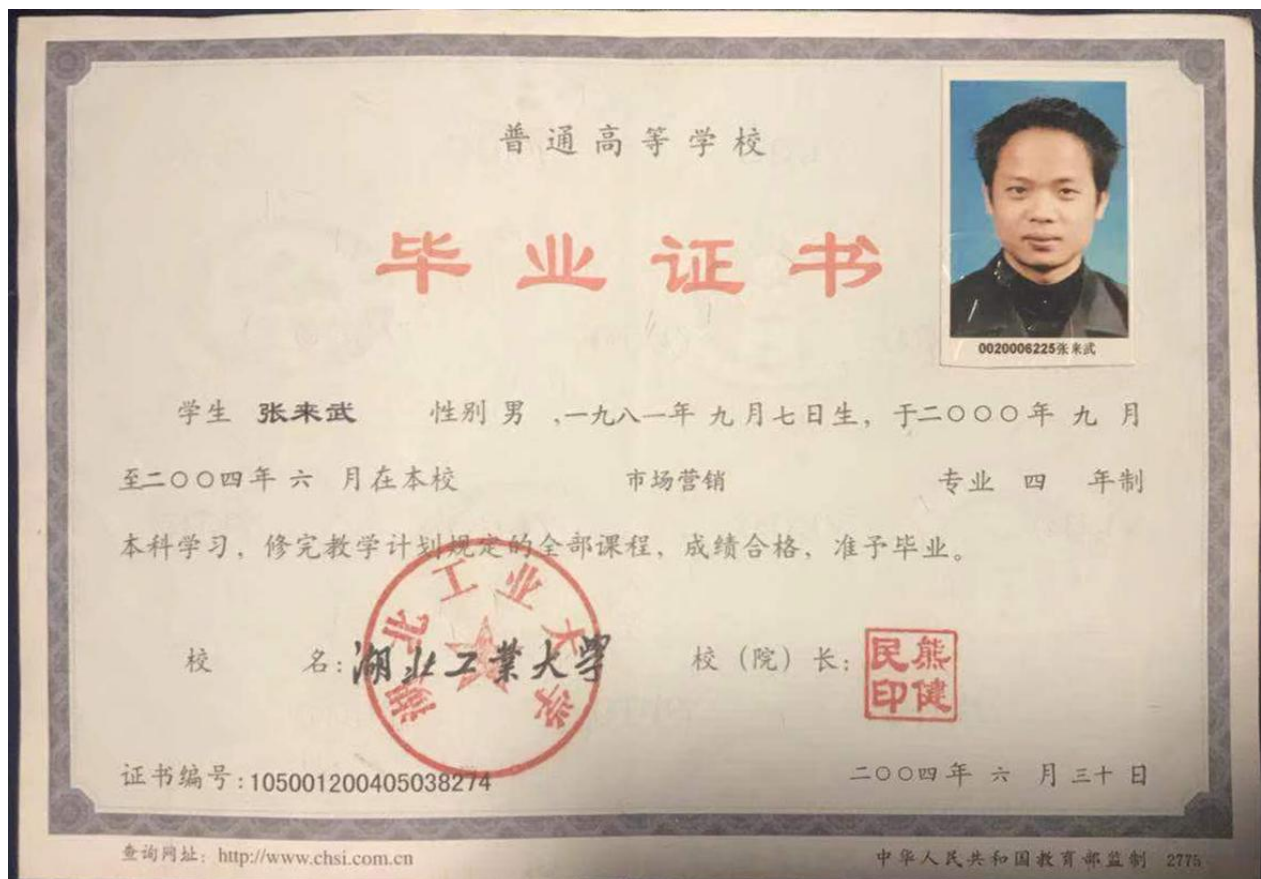 普通高等学校
毕业证书
0020006225张来武
学生 张来武 性别 男 ,一九八一年 九月七日生，于二〇〇〇年 九 月
至二〇〇四年 六 月在本校 市场营销 专业 四 年制
本科学习，修完教学计划规定的全部课程，成绩合格，准予毕业。
湖北工业大学
校 名：湖北工業大學 校（院）长：
熊健民印
证书编号：105001200405038274 二〇〇四年 六 月三十日
查询网址：http://www.chsi.com.cn 中华人民共和国教育部监制 2775